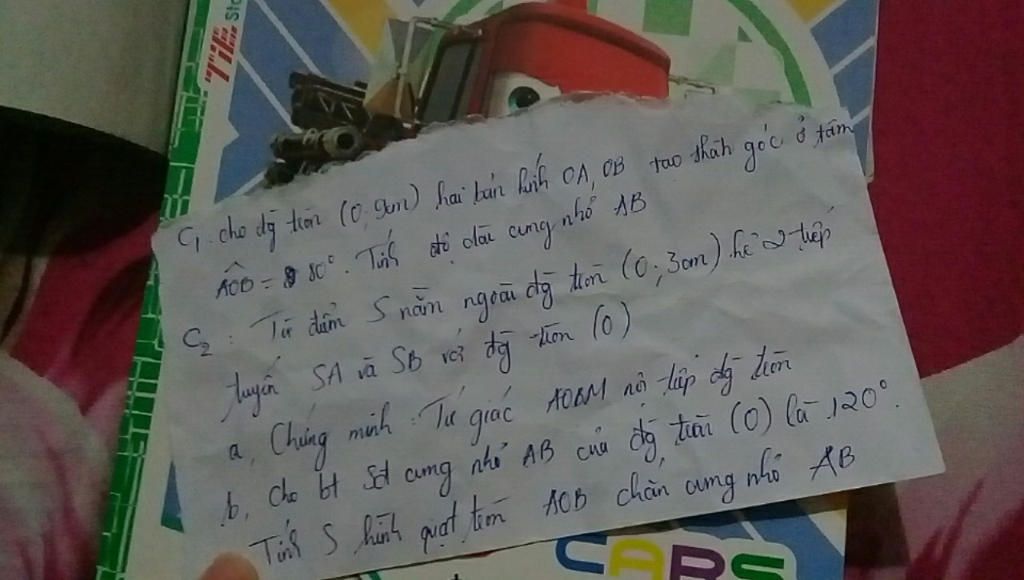 Life Sto
C1. cho đg tròn (O, 9cm) hai bán kính OA, OB tạo thành góc ở tâm
AOB = 80°. Tính độ dài cung nhỏ AB
C2: Từ điểm S nằm ngoài đg tròn (O; 3cm). kẻ 2 tiếp
tuyến SA và SB với đg tròn (O)
a, Chứng minh: Tứ giác AOBM nội tiếp đg tròn
b, Cho bt Sđ cung nhỏ AB của đg tròn (O) là 120°.
Tính S hình quạt tròn AOB chắn cung nhỏ AB
CARS